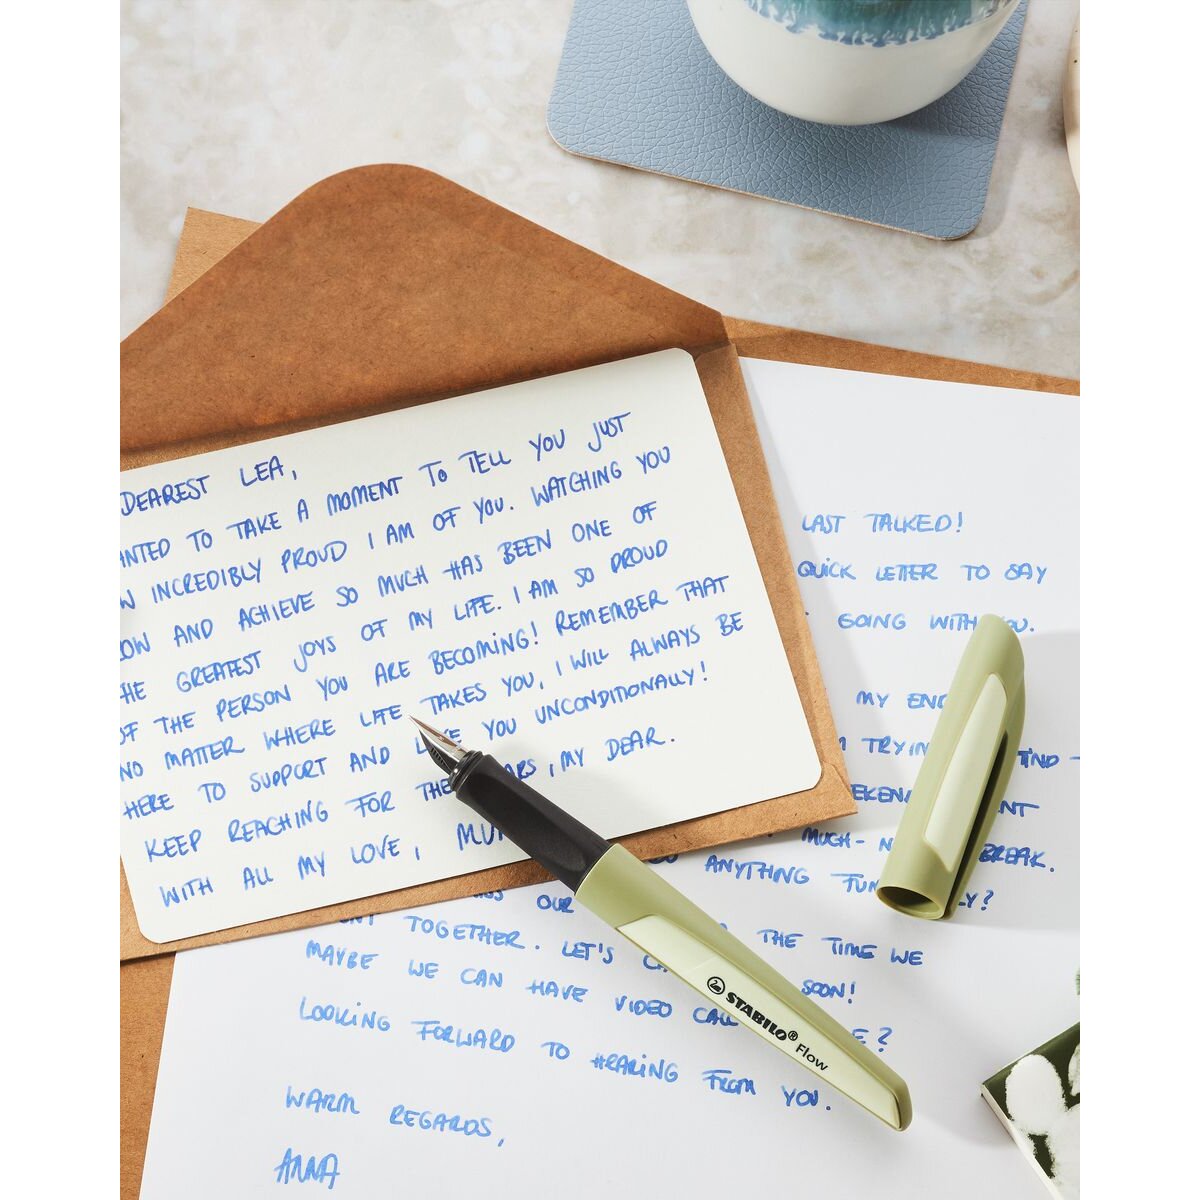 DEAREST LEA,
ANTED TO TAKE A MOMENT TO TELL YOU JUST
W INCREDIBLY PROUD I AM OF YOU. WATCHING YOU
OW AND ACHIEVE SO MUCH HAS BEEN ONE OF
HE GREATEST JOYS OF MY LIFE. I AM SO PROUD
OF THE PERSON YOU ARE BECOMING! REMEMBER THAT
NO MATTER WHERE LIFE TAKES YOU, I WILL ALWAYS BE
HERE TO SUPPORT AND YOU UNCONDITIONALLY!
KEEP REACHING FOR THE , MY DEAR.
WITH ALL MY LOVE, MU
LAST TALKED!
QUICK LETTER TO SAY
GOING WITH YOU.
MY END
TRYIN IND -
EKEN NT
MUCH-N BREAK.
ANYTHING FUN LY?
ISS OUR THE TIME WE
ENT TOGETHER. LET'S SOON!
MAYBE WE CAN HAVE VIDEO CALL E?
LOOKING FORWARD TO HEARING FROM YOU.
WARM REGARDS,
ANNA
STABILO® Flow